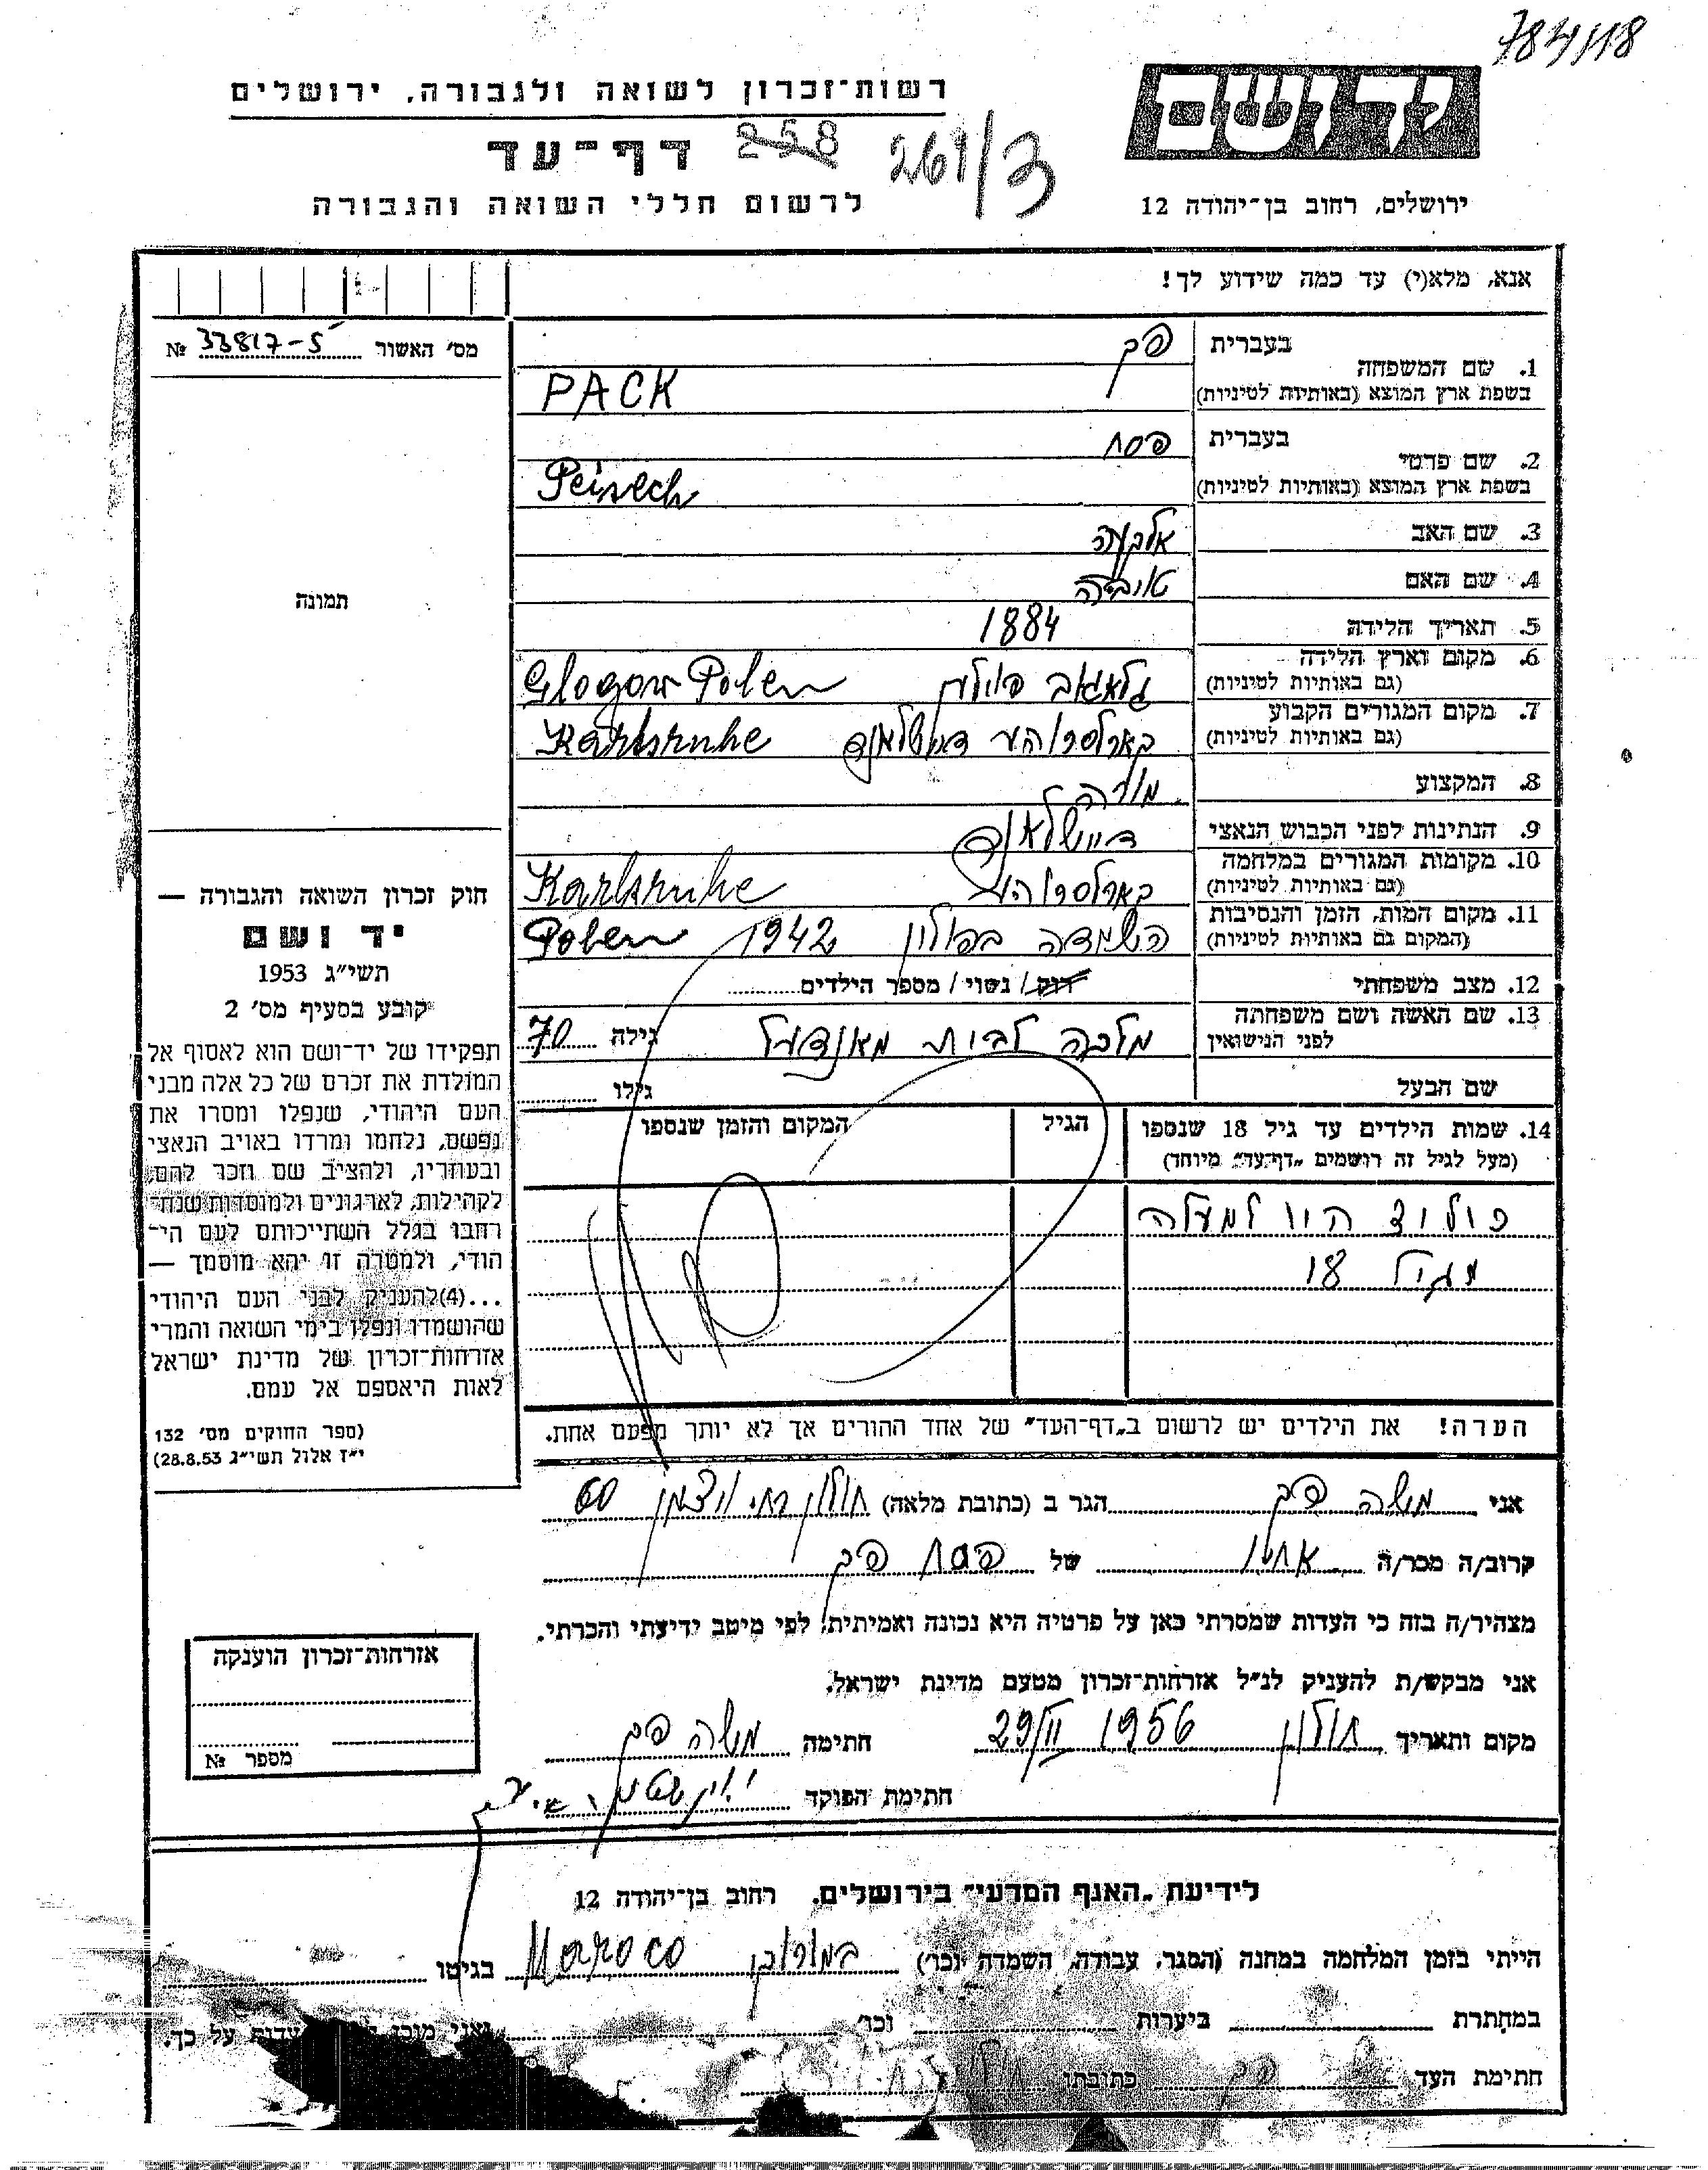 784118
רשות־זכרון לשואה ולגבורה, ירושלים
יד ושם
דף־עד 258 269/3
לרשום חללי השואה והגבורה
ירושלים, רחוב בן־יהודה 12
אנא, מלא(י) עד כמה שידוע לך!
מס׳ האשור 33817-5 №
1. שם המשפחה
בעברית פק
בשפת ארץ המוצא (באותיות לטיניות) PACK
2. שם פרטי
בעברית פסח
בשפת ארץ המוצא (באותיות לטיניות) Peisech
3. שם האב
4. שם האם
5. תאריך הלידה 1884
6. מקום וארץ הלידה
(גם באותיות לטיניות) גלאגאב פולין Glogow Polen
7. מקום המגורים הקבוע
(גם באותיות לטיניות) קארלסרוהע Karlsruhe
8. המקצוע מורה
9. הנתינות לפני הכבוש הנאצי
10. מקומות המגורים במלחמה
(גם באותיות לטיניות) קארלסרוהע Karlsruhe
11. מקום המות, הזמן והנסיבות
(המקום גם באותיות לטיניות) השמדה בפולין 1942 Polen
12. מצב משפחתי רווק / נשוי / מספר הילדים
13. שם האשה ושם משפחתה
לפני הנישואין מלכה לבית מאנדעל גילה 70
שם הבעל גילו
14. שמות הילדים עד גיל 18 שנספו הגיל המקום והזמן שנספו
(מעל לגיל זה רושמים „דף־עד” מיוחד)
כולם היו למעלה
מגיל 18
הערה! את הילדים יש לרשום ב„דף־העד” של אחד ההורים אך לא יותר מפעם אחת.
תמונה
חוק זכרון השואה והגבורה —
יד ושם
תשי״ג 1953
קובע בסעיף מס׳ 2
תפקידו של יד־ושם הוא לאסוף אל
המולדת את זכרם של כל אלה מבני
העם היהודי, שנפלו ומסרו את
נפשם, נלחמו ומרדו באויב הנאצי
ובעוזריו, ולהציב שם וזכר להם,
לקהילות, לארגונים ולמוסדות שנח־
רבו בגלל השתייכותם לעם הי־
הודי, ולמטרה זו יהא מוסמך —
...(4)להעניק לבני העם היהודי
שהושמדו ונפלו בימי השואה והמרי
אזרחות־זכרון של מדינת ישראל
לאות היאספם אל עמם.
(ספר החוקים מס׳ 132
י״ז אלול תשי״ג 28.8.53)
אני משה פק הגר ב (כתובת מלאה) חולון רח׳ ויצמן 60
קרוב/ה מכר/ה אחיו של פסח פק
מצהיר/ה בזה כי העדות שמסרתי כאן על פרטיה היא נכונה ואמיתית, לפי מיטב ידיעתי והכרתי.
אני מבקש/ת להעניק לנ״ל אזרחות־זכרון מטעם מדינת ישראל.
מקום ותאריך חולון 29/II 1956 חתימה משה פק
חתימת הפוקד
אזרחות־זכרון הוענקה
מספר №
לידיעת „האגף המדעי” בירושלים, רחוב בן־יהודה 12
הייתי בזמן המלחמה במחנה (הסגר, עבודה, השמדה וכר׳) במרוקו Maroco בגיטו
במחתרת ביערות וכר׳ ואני מוכן עדות על כך.
חתימת העד פק כתובתו